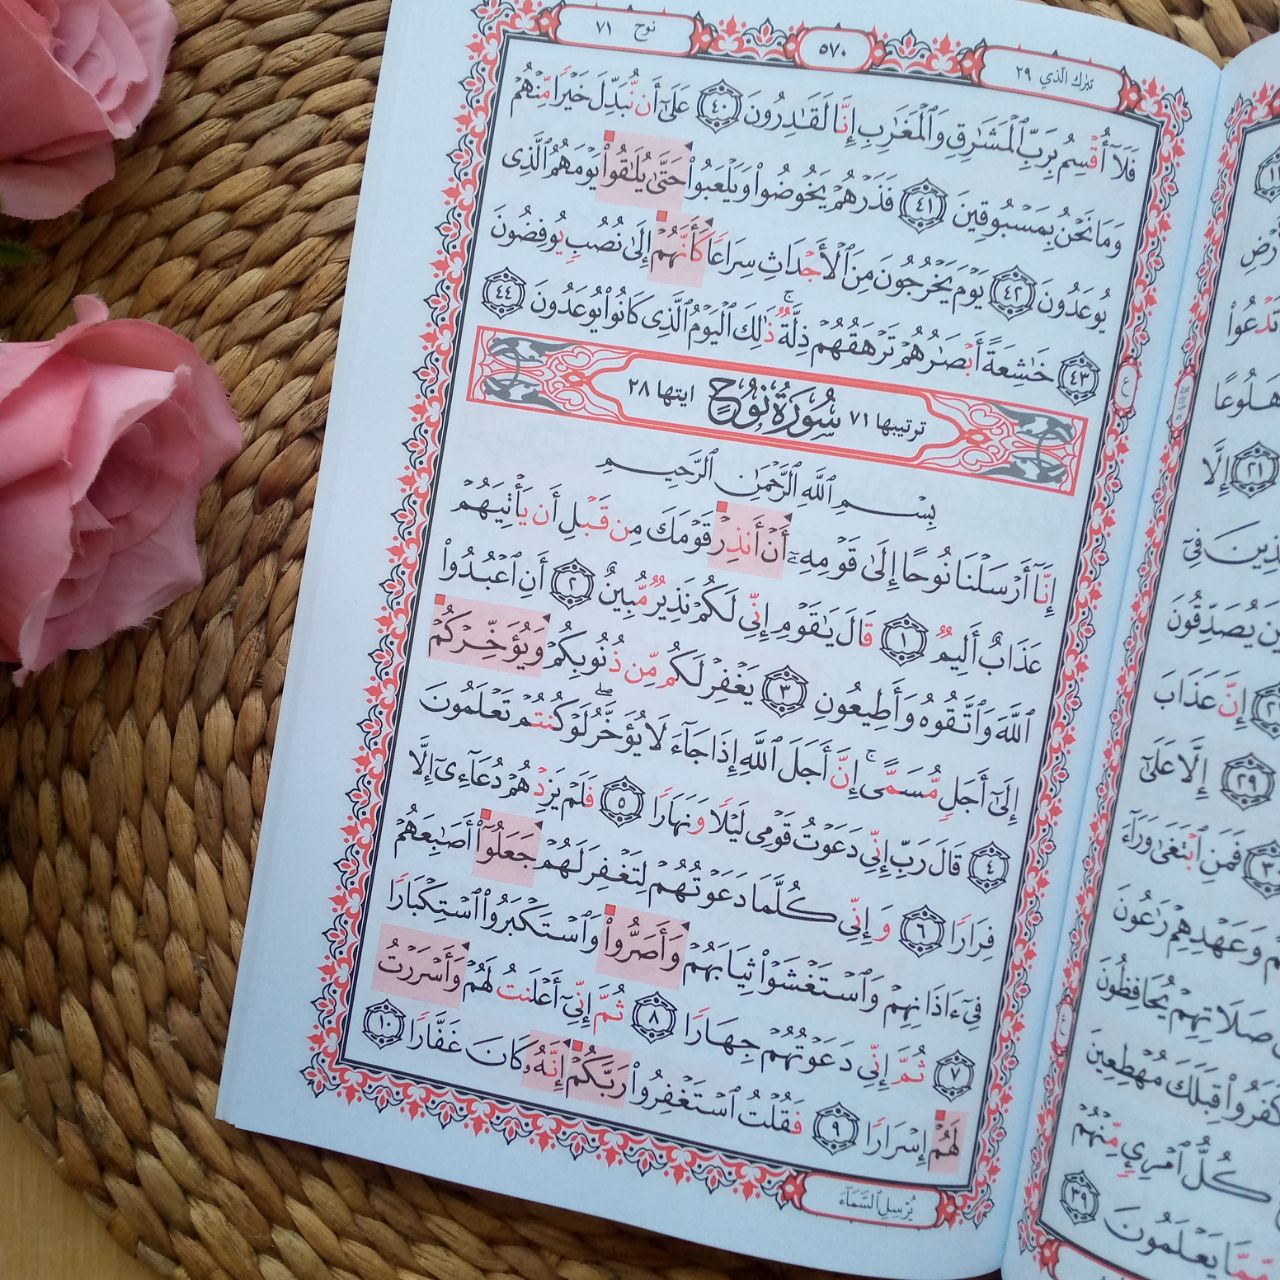 نوح ٧١
٥٧٠
تبرك الذي ٢٩
فَلَآ أُقۡسِمُ بِرَبِّ ٱلۡمَشَٰرِقِ وَٱلۡمَغَٰرِبِ إِنَّا لَقَٰدِرُونَ ٤٠ عَلَىٰٓ أَن نُّبَدِّلَ خَيۡرًا مِّنۡهُمۡ
وَمَا نَحۡنُ بِمَسۡبُوقِينَ ٤١ فَذَرۡهُمۡ يَخُوضُواْ وَيَلۡعَبُواْ حَتَّىٰ يُلَٰقُواْ يَوۡمَهُمُ ٱلَّذِي
يُوعَدُونَ ٤٢ يَوۡمَ يَخۡرُجُونَ مِنَ ٱلۡأَجۡدَاثِ سِرَاعٗا كَأَنَّهُمۡ إِلَىٰ نُصُبٖ يُوفِضُونَ
٤٣ خَٰشِعَةً أَبۡصَٰرُهُمۡ تَرۡهَقُهُمۡ ذِلَّةٞۚ ذَٰلِكَ ٱلۡيَوۡمُ ٱلَّذِي كَانُواْ يُوعَدُونَ ٤٤
ترتيبها ٧١ سُورَةُ نُوحٍ ايتها ٢٨
بِسۡمِ ٱللَّهِ ٱلرَّحۡمَٰنِ ٱلرَّحِيمِ
إِنَّآ أَرۡسَلۡنَا نُوحًا إِلَىٰ قَوۡمِهِۦٓ أَنۡ أَنذِرۡ قَوۡمَكَ مِن قَبۡلِ أَن يَأۡتِيَهُمۡ
عَذَابٌ أَلِيمٞ ١ قَالَ يَٰقَوۡمِ إِنِّي لَكُمۡ نَذِيرٞ مُّبِينٌ ٢ أَنِ ٱعۡبُدُواْ
ٱللَّهَ وَٱتَّقُوهُ وَأَطِيعُونِ ٣ يَغۡفِرۡ لَكُم مِّن ذُنُوبِكُمۡ وَيُؤَخِّرۡكُمۡ
إِلَىٰٓ أَجَلٖ مُّسَمًّىۚ إِنَّ أَجَلَ ٱللَّهِ إِذَا جَآءَ لَا يُؤَخَّرُۖ لَوۡ كُنتُمۡ تَعۡلَمُونَ
٤ قَالَ رَبِّ إِنِّي دَعَوۡتُ قَوۡمِي لَيۡلٗا وَنَهَارٗا ٥ فَلَمۡ يَزِدۡهُمۡ دُعَآءِيٓ إِلَّا
فِرَارٗا ٦ وَإِنِّي كُلَّمَا دَعَوۡتُهُمۡ لِتَغۡفِرَ لَهُمۡ جَعَلُوٓاْ أَصَٰبِعَهُمۡ
فِيٓ ءَاذَانِهِمۡ وَٱسۡتَغۡشَوۡاْ ثِيَابَهُمۡ وَأَصَرُّواْ وَٱسۡتَكۡبَرُواْ ٱسۡتِكۡبَارٗا
٧ ثُمَّ إِنِّي دَعَوۡتُهُمۡ جِهَارٗا ٨ ثُمَّ إِنِّيٓ أَعۡلَنتُ لَهُمۡ وَأَسۡرَرۡتُ
لَهُمۡ إِسۡرَارٗا ٩ فَقُلۡتُ ٱسۡتَغۡفِرُواْ رَبَّكُمۡ إِنَّهُۥ كَانَ غَفَّارٗا ١٠
يُرۡسِلِ ٱلسَّمَآءَ
هَلُوعًا
٢١ إِلَّا
يُصَدِّقُونَ
إِنَّ عَذَابَ
٢٩ إِلَّا عَلَىٰٓ
فَمَنِ ٱبۡتَغَىٰ وَرَآءَ
وَعَهۡدِهِمۡ رَٰعُونَ
صَلَاتِهِمۡ يُحَافِظُونَ
قِبَلَكَ مُهۡطِعِينَ
كُلُّ ٱمۡرِيٕٖ مِّنۡهُمۡ
يَعۡلَمُونَ ٣٩